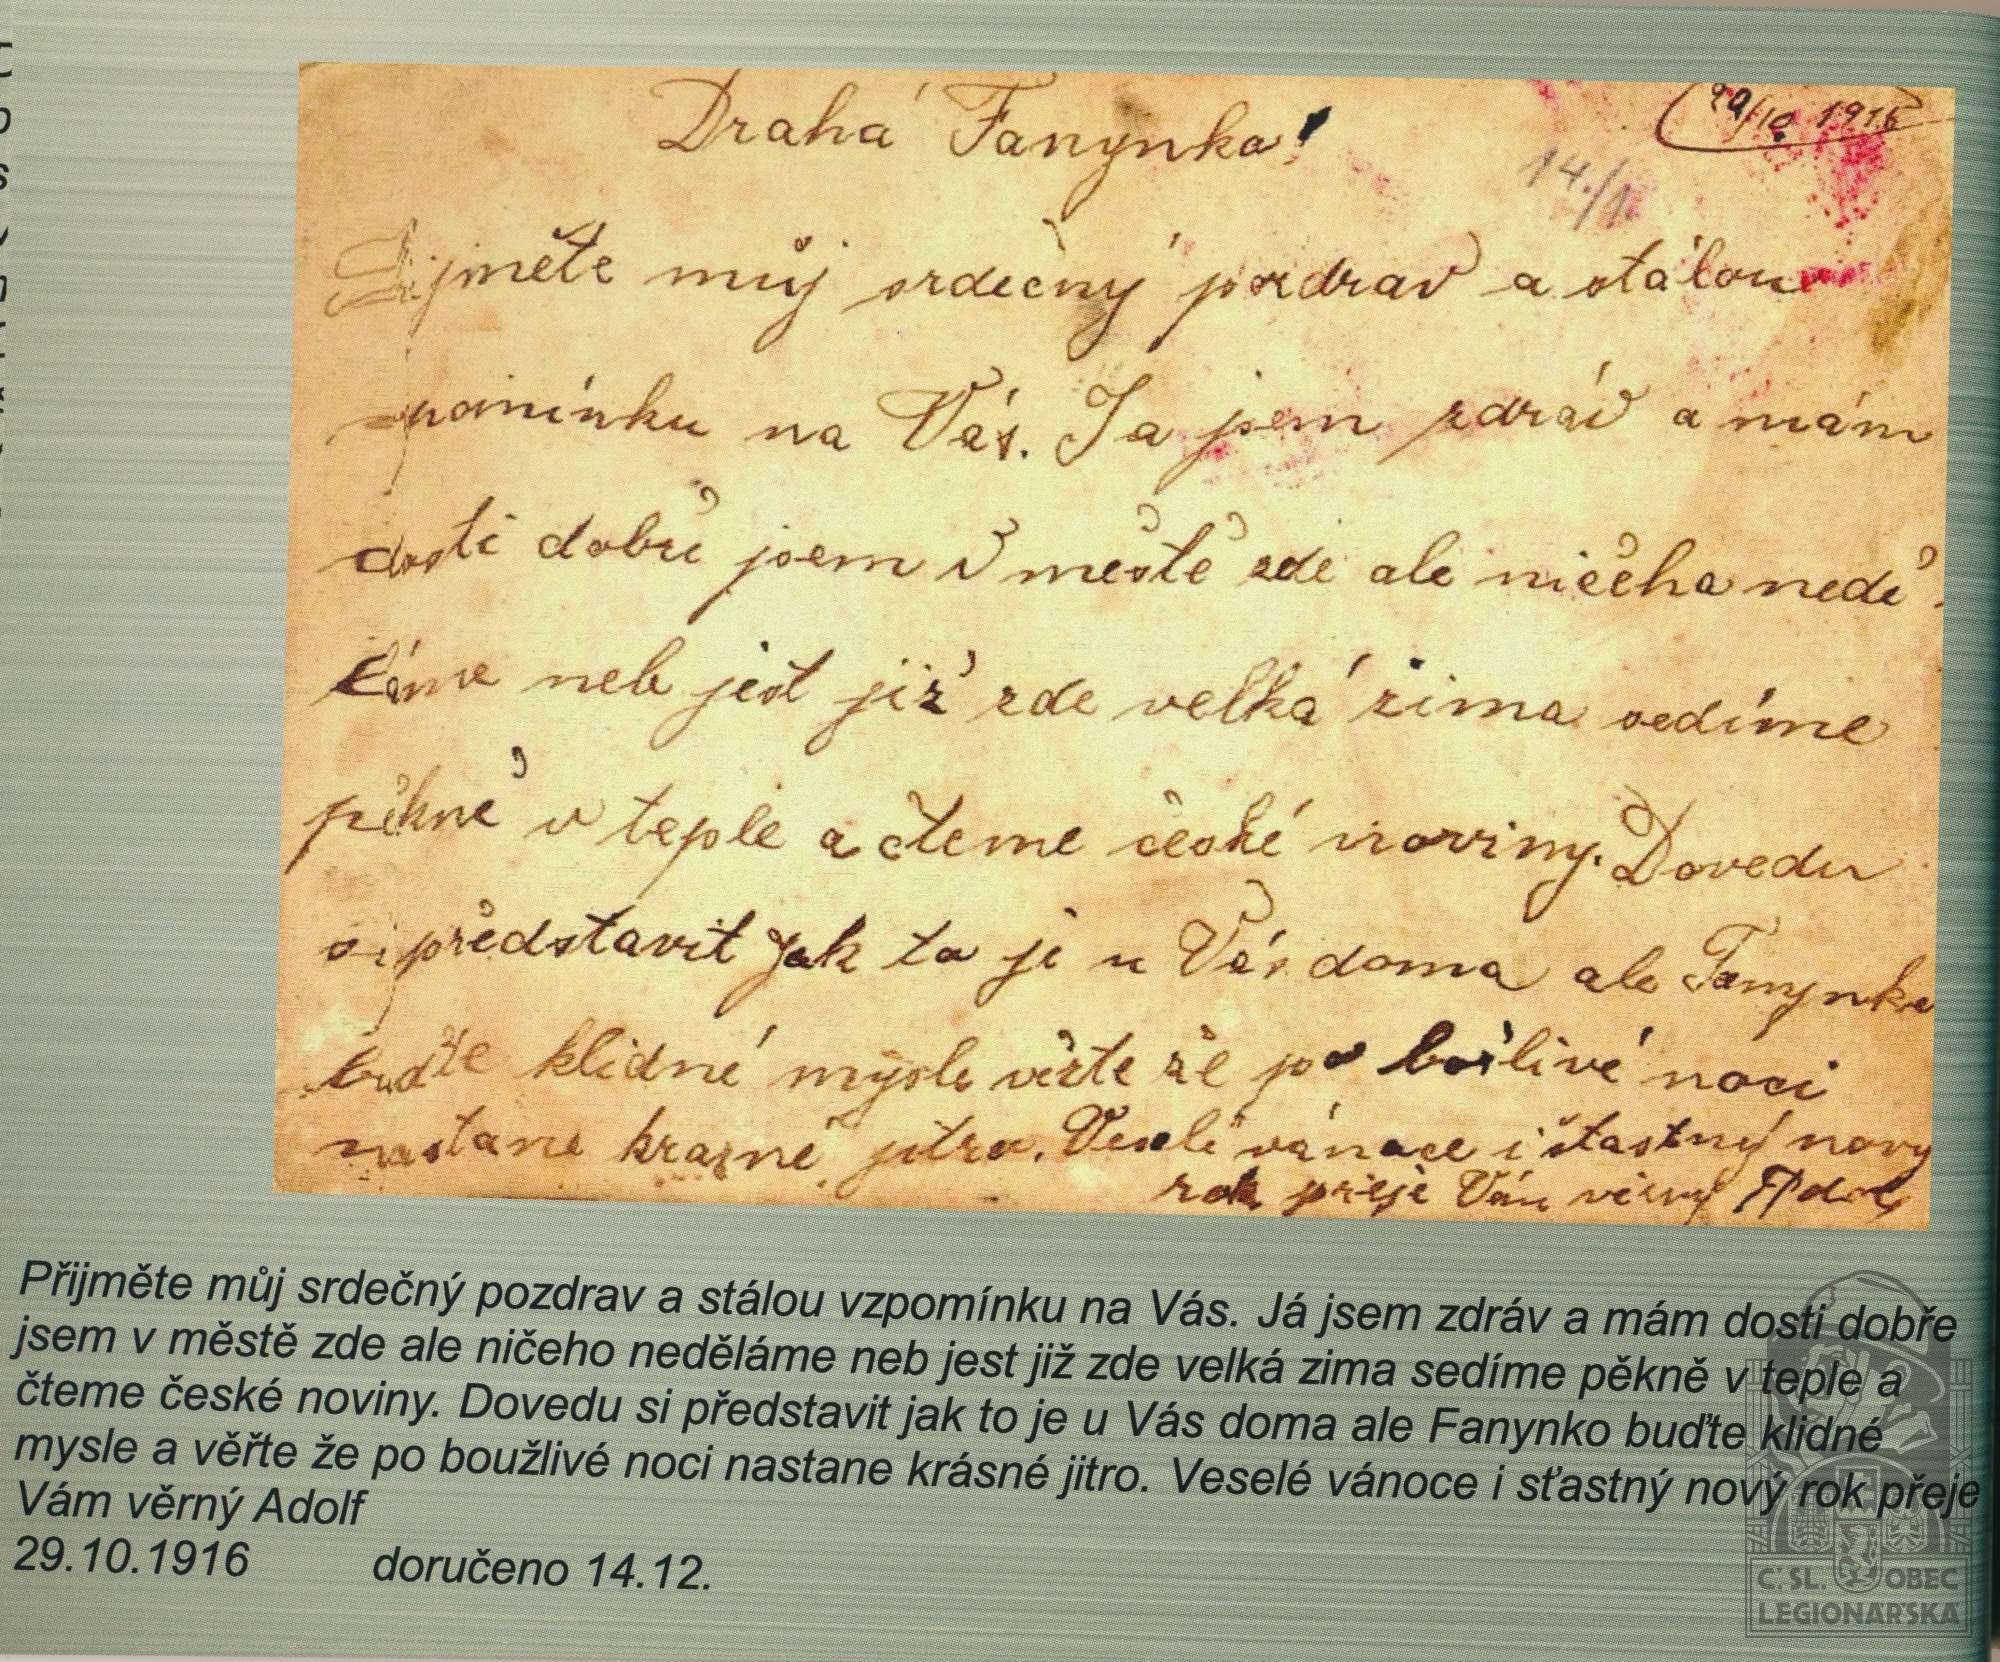 Drahá Fanynko!
29/10 1916
14./1
Přijměte můj srdečný pozdrav a stálou
vzpomínku na Vás. Já jsem zdráv a mám
dosti dobře jsem v městě zde ale ničeho nedě-
láme neb jest již zde velká zima sedíme
pěkně v teple a čteme české noviny. Dovedu
si představit jak to je u Vás doma ale Fanynko
buďte klidné mysle věřte že po bouřlivé noci
nastane krásné jitro. Veselé vánoce i štastný nový
rok přeje Vám věrný Adolf
Přijměte můj srdečný pozdrav a stálou vzpomínku na Vás. Já jsem zdráv a mám dosti dobře
jsem v městě zde ale ničeho neděláme neb jest již zde velká zima sedíme pěkně v teple a
čteme české noviny. Dovedu si představit jak to je u Vás doma ale Fanynko buďte klidné
mysle a věřte že po boužlivé noci nastane krásné jitro. Veselé vánoce i sťastný nový rok přeje
Vám věrný Adolf
29.10.1916 doručeno 14.12.
Č.SL. OBEC
LEGIONÁŘSKÁ